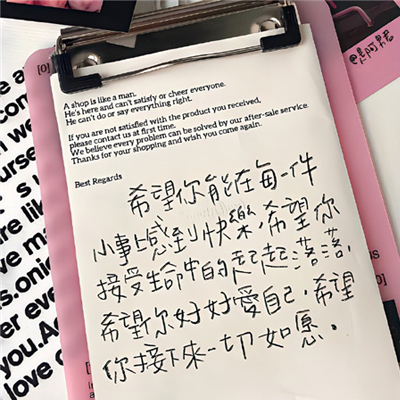 A shop is like a man.
He's here and can't satisfy or cheer everyone.
He can't do or say everything right.
If you are not satisfied with the product you received,
please contact us at first time.
We believe every problem can be solved by our after-sale service.
Thanks for your shopping and wish you come again.
Best Regards
希望你能在每一件
小事上感到快樂,希望你
接受生命中的起起落落,
希望你好好愛自己,希望
你接下來一切如愿。
[0]
you.Ado
love